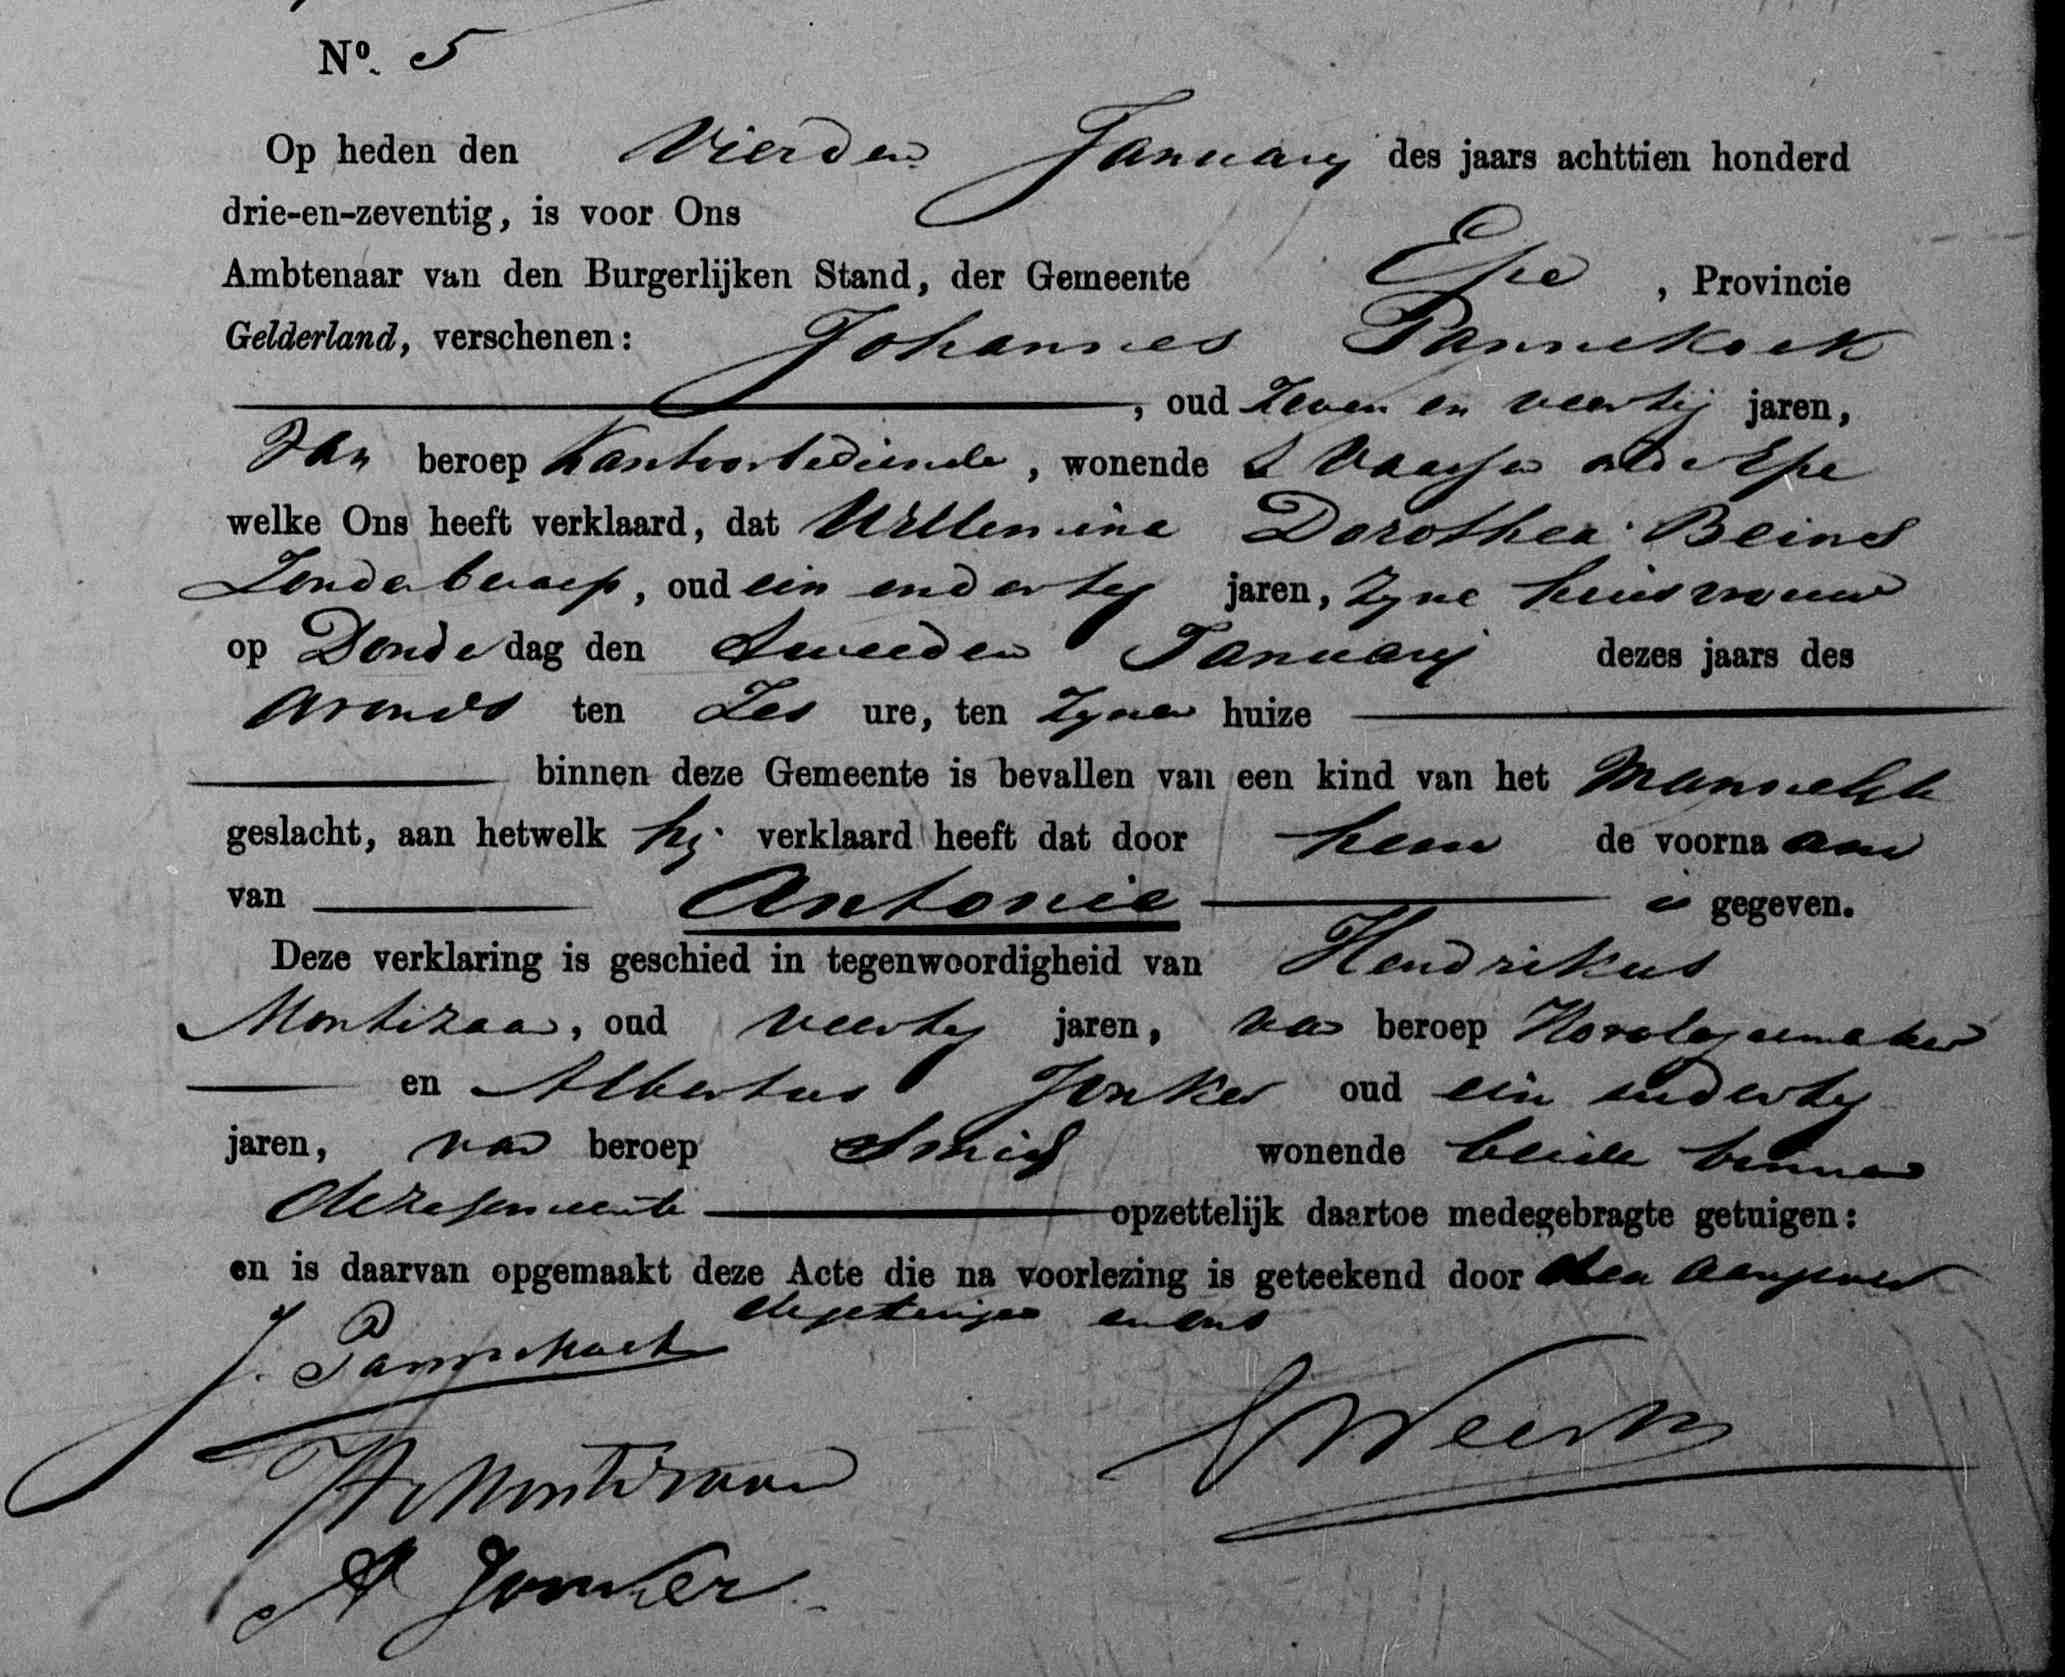 Nº. 5
Op heden den Vierden Januarij des jaars achttien honderd
drie-en-zeventig, is voor Ons
Ambtenaar van den Burgerlijken Stand, der Gemeente Epe, Provincie
Gelderland, verschenen: Johannes Pannekoek
, oud zeven en veertig jaren,
van beroep Kantoorbediende, wonende te Vaassen onder Epe
welke Ons heeft verklaard, dat Willemina Dorothea Beins
Zonder beroep, oud een en dertig jaren, zyne huisvrouw
op Donderdag den tweeden Januarij dezes jaars des
avonds ten Zes ure, ten zynen huize
binnen deze Gemeente is bevallen van een kind van het Mannelijk
geslacht, aan hetwelk hij verklaard heeft dat door hem de voornaam
van Antonie is gegeven.
Deze verklaring is geschied in tegenwoordigheid van Hendrikus
Montizaan, oud veertig jaren, van beroep Horologiemaker
en Albertus Jonker oud een en dertig
jaren, van beroep Smid wonende beide binnen
deze gemeente opzettelijk daartoe medegebragte getuigen:
en is daarvan opgemaakt deze Acte die na voorlezing is geteekend door den aangever
de getuigen en ons
J. Pannekoek
H Montizaan
Weerts
A Jonker